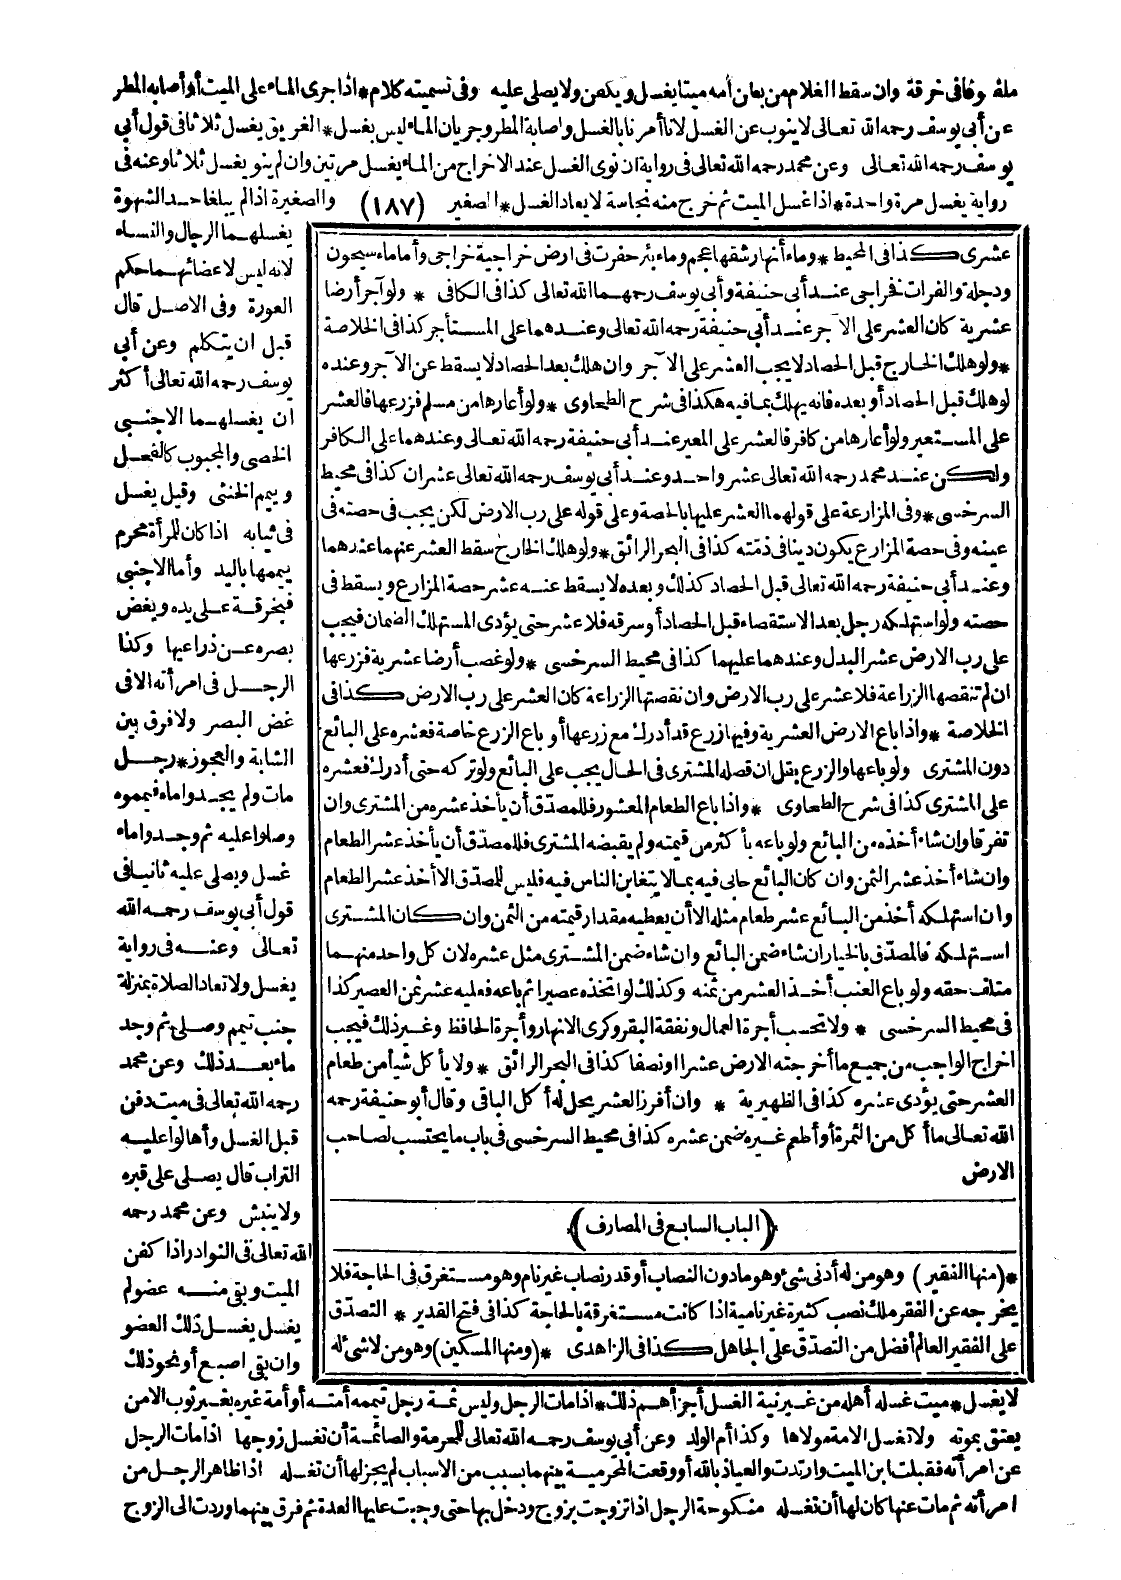 ملفوفا فى خرقة وان سقط الغلام من بطن أمه ميتا يغسل ويكفن ولا يصلى عليه وفى تسميته كلام * اذا جرى الماء على الميت أو أصابه المطر
عن أبى يوسف رحمه الله تعالى لا ينوب عن الغسل لانا أمرنا بالغسل واصابة المطر وجريان الماء ليس بغسل * الغريق يغسل ثلاثا فى قول أبى
يوسف رحمه الله تعالى وعن محمد رحمه الله تعالى فى رواية ان نوى الغسل عند الاخراج من الماء يغسل مرتين وان لم ينو يغسل ثلاثا وعنه فى
رواية يغسل مرة واحدة * اذا غسل الميت ثم خرج منه نجاسة لا يعاد الغسل * الصغير (١٨٧) والصغيرة اذا لم يبلغا حد الشهوة
يغسلهما الرجال والنساء
لانه ليس لاعضائهما حكم
العورة وفى الاصل قال
قبل ان يتكلم وعن أبى
يوسف رحمه الله تعالى أكثر
ان يغسلهما الاجنبى
الخصى والمجبوب كالفحل
وييمم الخنثى وقيل يغسل
فى ثيابه اذا كان للمرأة محرم
ييممها باليد وأما الاجنبى
فبخرقة على يده ويغض
بصره عن ذراعيها وكذا
الرجل فى امرأته الا فى
غض البصر ولا فرق بين
الشابة والعجوز * رجل
مات ولم يجدوا ماء فيمموه
وصلوا عليه ثم وجدوا ماء
غسل ويصلى عليه ثانيا فى
قول أبى يوسف رحمه الله
تعالى وعنه فى رواية
يغسل ولا تعاد الصلاة بمنزلة
جنب تيمم وصلى ثم وجد
ماء بعد ذلك وعن محمد
رحمه الله تعالى فى ميت دفن
قبل الغسل وأهالوا عليه
التراب قال يصلى على قبره
ولا ينبش وعن محمد رحمه
الله تعالى فى النوادر اذا كفن
الميت وبقى منه عضو لم
يغسل يغسل ذلك العضو
وان بقى اصبع أو نحو ذلك
عشرى كذا فى المحيط * وماء أنهار شقها عجم وماء بئر حفرت فى ارض خراجية خراجى وأما ماء سيحون
ودجلة والفرات فخراجى عند أبى حنيفة وأبى يوسف رحمهما الله تعالى كذا فى الكافى * ولو آجر أرضا
عشرية كان العشر على الآجر عند أبى حنيفة رحمه الله تعالى وعندهما على المستأجر كذا فى الخلاصة
* ولو هلك الخارج قبل الحصاد لا يجب العشر على الآجر وان هلك بعد الحصاد لا يسقط عن الآجر وعنده
لو هلك قبل الحصاد أو بعده فانه يهلك بما فيه هكذا فى شرح الطحاوى * ولو أعارها من مسلم فزرعها فالعشر
على المستعير ولو أعارها من كافر فالعشر على المعير عند أبى حنيفة رحمه الله تعالى وعندهما على الكافر
ولكن عند محمد رحمه الله تعالى عشر واحد وعند أبى يوسف رحمه الله تعالى عشران كذا فى محيط
السرخسى * وفى المزارعة على قولهما العشر عليها بالحصة وعلى قوله على رب الارض لكن يجب فى حصته فى
عينه وفى حصة المزارع يكون دينا فى ذمته كذا فى البحر الرائق * ولو هلك الخارج سقط العشر عنهما عندهما
وعند أبى حنيفة رحمه الله تعالى قبل الحصاد كذلك وبعده لا يسقط عنه عشر حصة المزارع ويسقط فى
حصته ولو استهلكه رجل بعد الاستقصاء قبل الحصاد أو سرقه فلا عشر حتى يؤدى المستهلك الضمان فيجب
على رب الارض عشر البدل وعندهما عليهما كذا فى محيط السرخسى * ولو غصب أرضا عشرية فزرعها
ان لم تنقصها الزراعة فلا عشر على رب الارض وان نقصتها الزراعة كان العشر على رب الارض كذا فى
الخلاصة * واذا باع الارض العشرية وفيها زرع قد أدرك مع زرعها أو باع الزرع خاصة فعشره على البائع
دون المشترى ولو باعها والزرع بقل ان قصله المشترى فى الحال يجب على البائع ولو تركه حتى أدرك فعشره
على المشترى كذا فى شرح الطحاوى * واذا باع الطعام المعشور فللمصدق أن يأخذ عشره من المشترى وان
تفرقا وان شاء أخذه من البائع ولو باعه بأكثر من قيمته ولم يقبضه المشترى فللمصدق أن يأخذ عشر الطعام
وان شاء أخذ عشر الثمن وان كان البائع حابى فيه بما لا يتغابن الناس فيه فليس للمصدق الا أخذ عشر الطعام
وان استهلكه أخذ من البائع عشر طعام مثله الا أن يعطيه مقدار قيمته من الثمن وان كان المشترى
استهلكه فالمصدق بالخيار ان شاء ضمن البائع وان شاء ضمن المشترى مثل عشره لان كل واحد منهما
متلف حقه ولو باع العنب أخذ العشر من ثمنه وكذلك لو اتخذه عصيرا ثم باعه فعليه عشر ثمن العصير كذا
فى محيط السرخسى * ولا تحسب أجرة العمال ونفقة البقر وكرى الانهار وأجرة الحافظ وغير ذلك فيجب
اخراج الواجب من جميع ما أخرجته الارض عشرا او نصفا كذا فى البحر الرائق * ولا يأكل شيأ من طعام
العشر حتى يؤدى عشره كذا فى الظهيرية * وان أفرز العشر يحل له أكل الباقى وقال أبو حنيفة رحمه
الله تعالى ما أكل من الثمرة أو أطعم غيره ضمن عشره كذا فى محيط السرخسى فى باب ما يحتسب لصاحب
الارض
(الباب السابع فى المصارف)
* (منها الفقير) وهو من له أدنى شئ وهو ما دون النصاب أو قدر نصاب غير نام وهو مستغرق فى الحاجة فلا
يخرجه عن الفقر ملك نصب كثيرة غير نامية اذا كانت مستغرقة بالحاجة كذا فى فتح القدير * التصدق
على الفقير العالم أفضل من التصدق على الجاهل كذا فى الزاهدى * (ومنها المسكين) وهو من لا شئ له
لا يغسل * ميت غسله أهله من غير نية الغسل أجزأهم ذلك * اذا مات الرجل وليس ثمة رجل تيممه أمته أو أمة غيره بغير ثوب الا من
يعتق بموته ولا تغسل الامة مولاها وكذا أم الولد وعن أبى يوسف رحمه الله تعالى للمحرمة والصائمة أن تغسل زوجها اذا مات الرجل
عن امرأته فقبلت ابن الميت وارتدت والعياذ بالله أو وقعت المحرمية بينهما بسبب من الاسباب لم يجز لها أن تغسله اذا ظاهر الرجل من
امرأته ثم مات عنها كان لها أن تغسله منكوحة الرجل اذا تزوجت بزوج ودخل بها حتى وجبت عليها العدة ثم فرق بينهما وردت الى الزوج